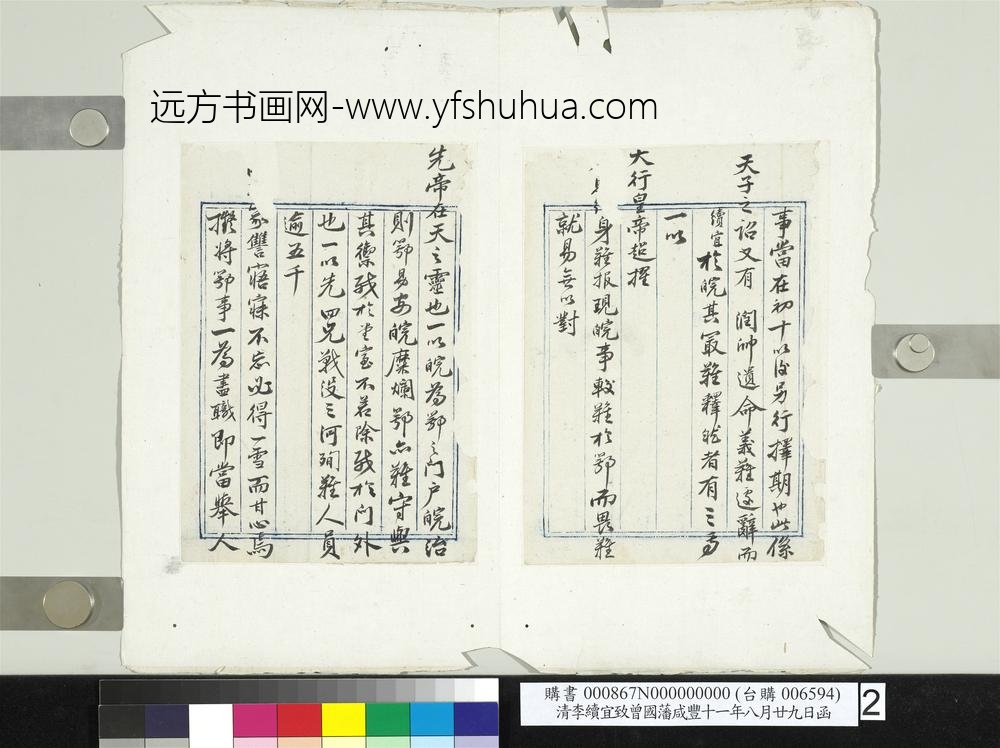 远方书画网-www.yfshuhua.com
事當在初十以後另行擇期也此係
天子之詔又有 潤帥遺命義難遽辭而
續宜於皖其最難釋然者有三焉
一以
大行皇帝超擢
身難报現皖事較難於鄂而畏難
就易無以對
先帝在天之靈也一以皖為鄂之门户皖治
則鄂易安皖糜爛鄂亦難守與
其禦殘於堂室不若除殘於门外
也一以先四兄戰没三河殉難人員
逾五千
家讐寤寐不忘必得一雪而甘心焉
擬将鄂事一為盡職即當舉人
購書 000867N000000000 (台購 006594)
清李續宜致曾國藩咸豐十一年八月廿九日函
2